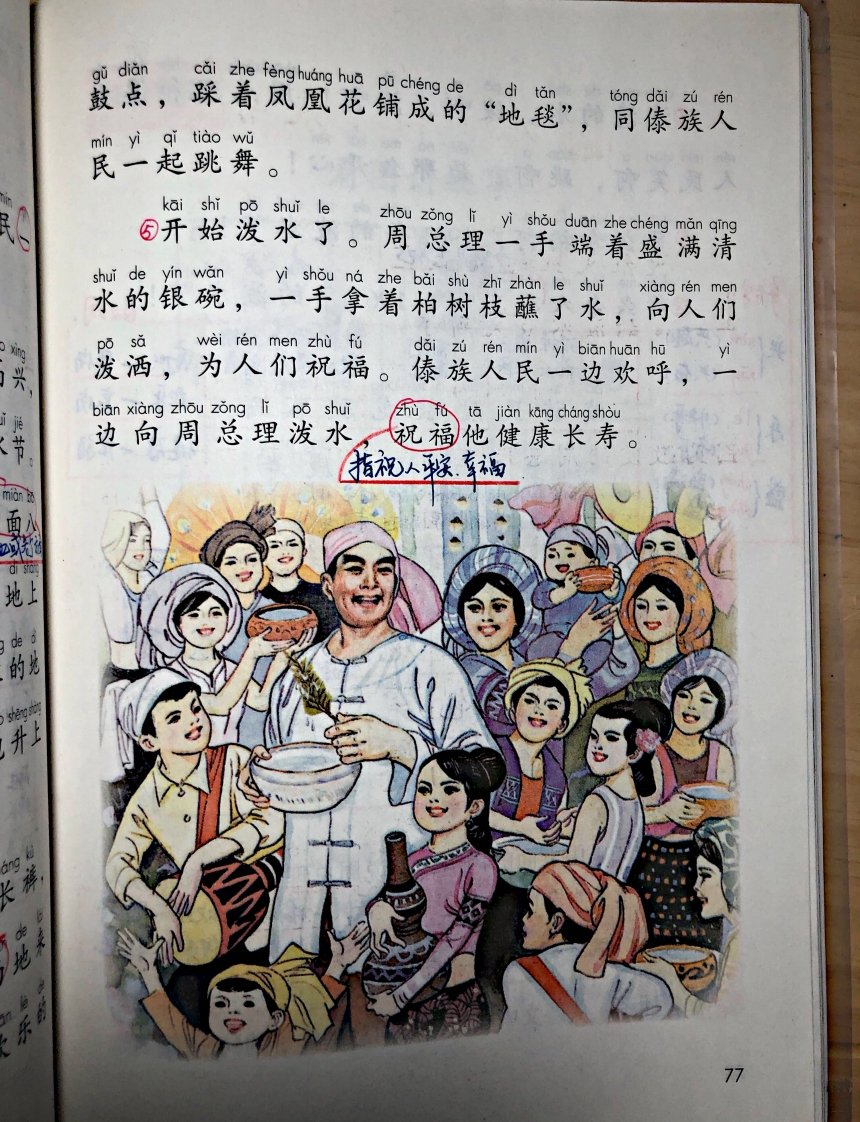 gǔ diǎn cǎi zhe fèng huáng huā pū chéng de dì tǎn tóng dǎi zú rén
鼓点，踩着凤凰花铺成的“地毯”，同傣族人
mín yì qǐ tiào wǔ
民一起跳舞。
kāi shǐ pō shuǐ le zhōu zǒng lǐ yì shǒu duān zhe chéng mǎn qīng
⑤开始泼水了。周总理一手端着盛满清
shuǐ de yín wǎn yì shǒu ná zhe bǎi shù zhī zhàn le shuǐ xiàng rén men
水的银碗，一手拿着柏树枝蘸了水，向人们
pō sǎ wèi rén men zhù fú dǎi zú rén mín yì biān huān hū yì
泼洒，为人们祝福。傣族人民一边欢呼，一
biān xiàng zhōu zǒng lǐ pō shuǐ zhù fú tā jiàn kāng cháng shòu
边向周总理泼水，祝福他健康长寿。
指祝人平安.幸福
mín
民
xìng
兴，
jié
节。
miàn bā
面八
地上
de
的地
shēng shàng
升上
长裤，
de
地来
乐的
77